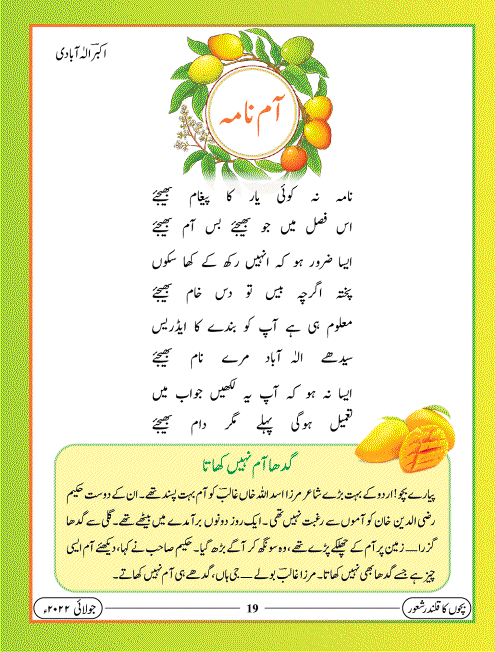 اکبر الٰہ آبادی
آم نامہ
نامہ نہ کوئی یار کا پیغام بھیجئے
اس فصل میں جو بھیجئے بس آم بھیجئے
ایسا ضرور ہو کہ انہیں رکھ کے کھا سکوں
پختہ اگرچہ بیس تو دس خام بھیجئے
معلوم ہی ہے آپ کو بندے کا ایڈریس
سیدھے الٰہ آباد مرے نام بھیجئے
ایسا نہ ہو کہ آپ یہ لکھیں جواب میں
تعمیل ہوگی پہلے مگر دام بھیجئے
گدھا آم نہیں کھاتا
پیارے بچو! اردو کے بہت بڑے شاعر مرزا اسد اللہ خاں غالبؔ کو آم بہت پسند تھے۔ ان کے دوست حکیم
رضی الدین خان کو آموں سے رغبت نہیں تھی۔ ایک روز دونوں برآمدے میں بیٹھے تھے۔ گلی سے گدھا
گزرا — زمین پر آم کے چھلکے پڑے تھے، وہ سونگھ کر آگے بڑھ گیا۔ حکیم صاحب نے کہا، دیکھئے آم ایسی
چیز ہے جسے گدھا بھی نہیں کھاتا۔ مرزا غالبؔ بولے — جی ہاں، گدھے ہی آم نہیں کھاتے۔
بچوں کا قلندر شعور
19
جولائی ۲۰۲۲ء